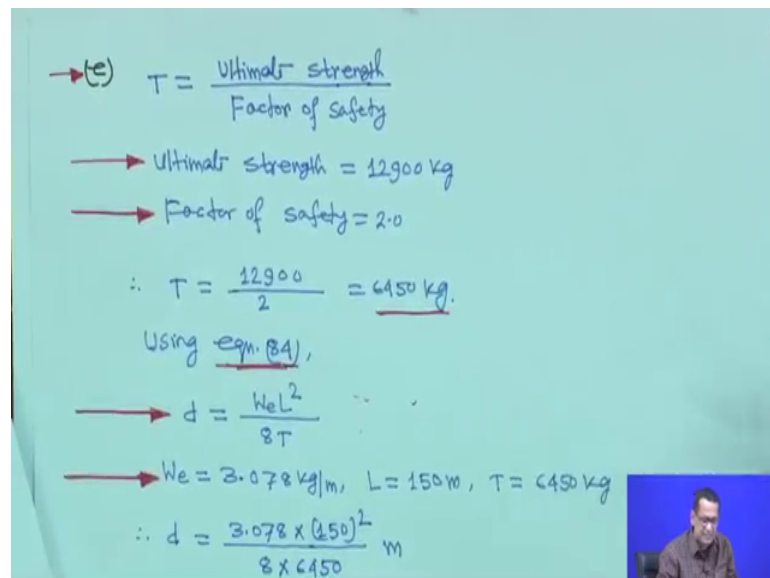 (e) T = Ultimate strength / Factor of safety
Ultimate strength = 12900 kg
Factor of safety = 2.0
∴ T = 12900 / 2 = 6450 kg.
Using eqn. (84),
d = WeL² / 8T
We = 3.078 kg/m, L = 150 m, T = 6450 kg
∴ d = 3.078 × (150)² / 8 × 6450 m